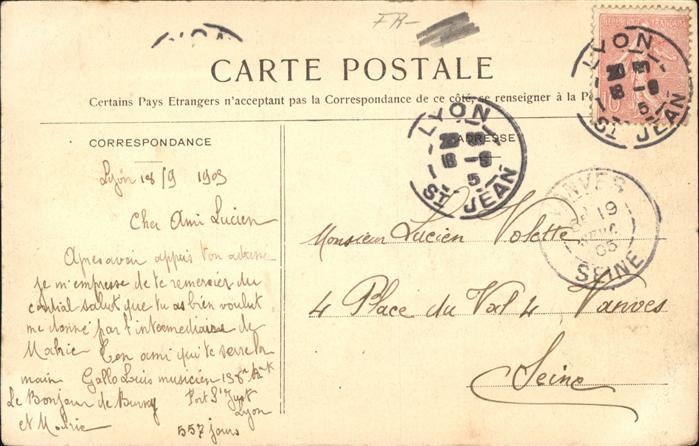 FR-
LYON
CARTE POSTALE
Certains Pays Etrangers n'acceptant pas la Correspondance de ce côté, se renseigner à la
CORRESPONDANCE
ADRESSE
REPUBLIQUE FRANÇAISE
10
LYON
18 - 9
5
ST JEAN
LYON
18 - 9
5
ST JEAN
VANVES
19
05
SEINE
Lyon 18/9 1905
Cher Ami Lucien
Apres avoir appris ton adresse
je m'empresse de te remercier du
cordial salut que tu as bien voulut
me donné par l'intermediaire de
Marie Ton ami qui te serre la
main Gallo Louis musicien
Le Bonjour de Fort St Just
et Marie Lyon
557 jours
Monsieur Lucien Volette
4 Place du Val 4 Vanves
Seine